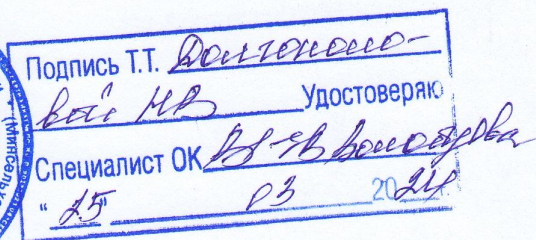 Подпись Т.Т. Долгополо-
вой НВ Удостоверяю
Специалист ОК
"25" 03 2024.
(Минсельхо